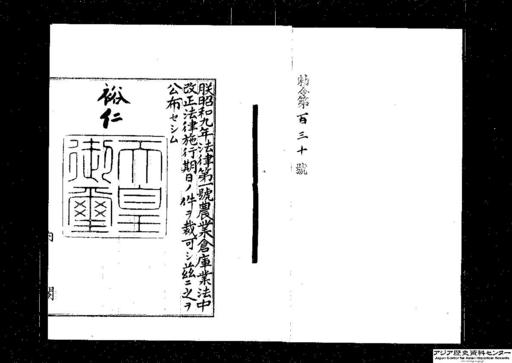 勅令第百三十號
朕昭和九年法律第一號農業倉庫業法中
改正法律施行期日ノ件ヲ裁可シ茲ニ之ヲ
公布セシム
裕仁
天皇
御璽
内閣
アジア歴史資料センター
Japan Center for Asian Historical Records